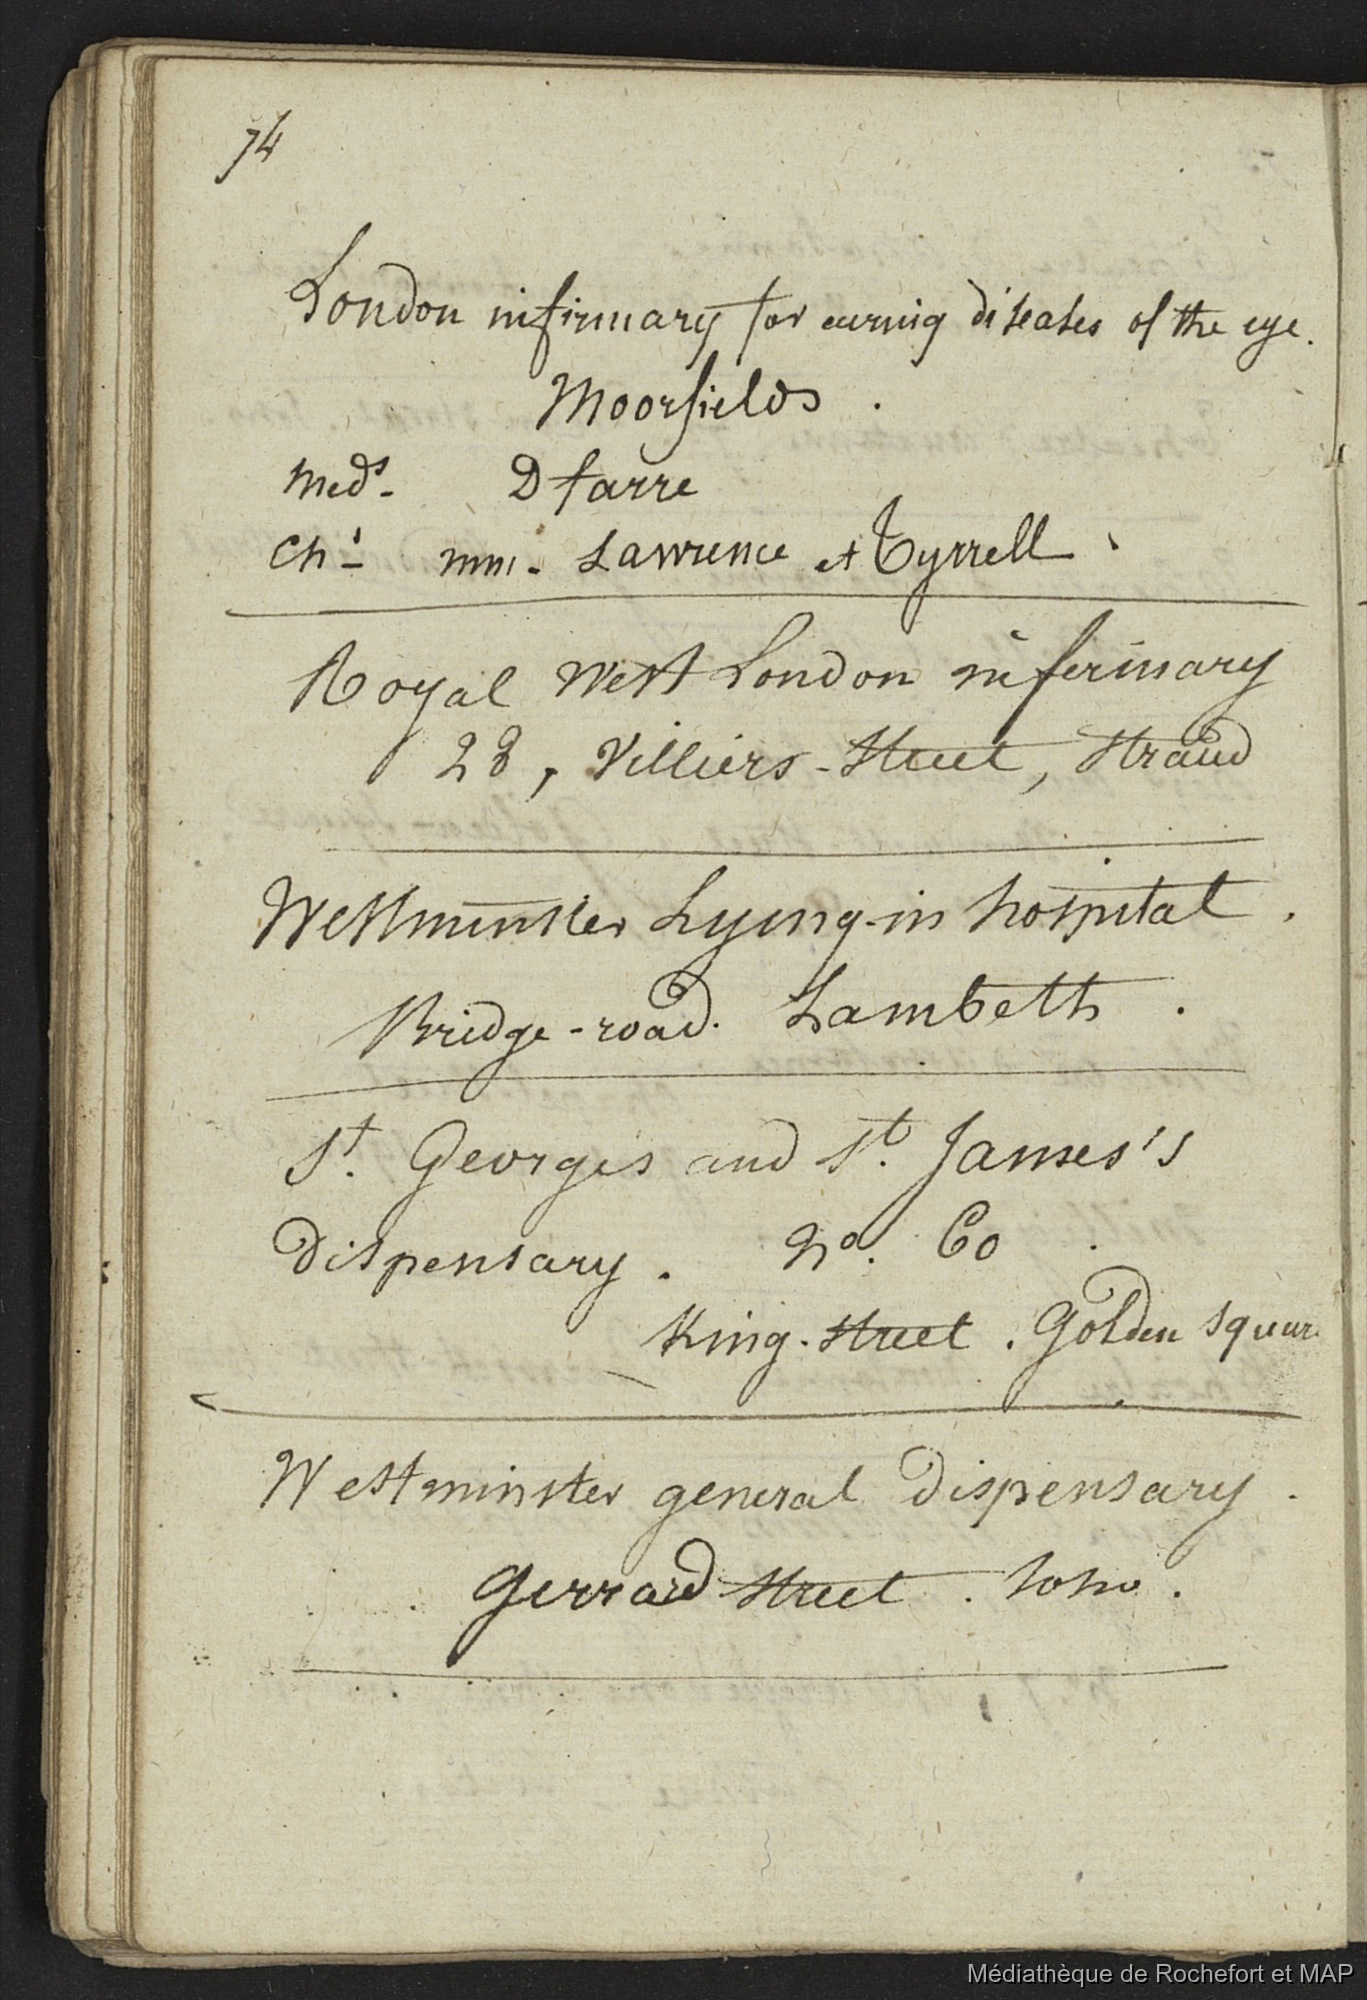 74
London infirmary for curing diseases of the eye.
Moorfields.
Meds. D farre
Chs. mm. Lawrence et Tyrrell.
Royal West London infermary
28, Villiers-Street, Strand
Westminster Lying-in hospital.
Bridge-road. Lambeth.
St. Georges and St. James's
Dispensary. No. 60
King-Street. Golden Square
Westminster general Dispensary.
Gerrard Street. Soho.
Médiathèque de Rochefort et MAP